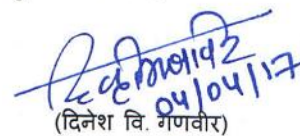 04/04/17
(दिनेश वि. गणवीर)